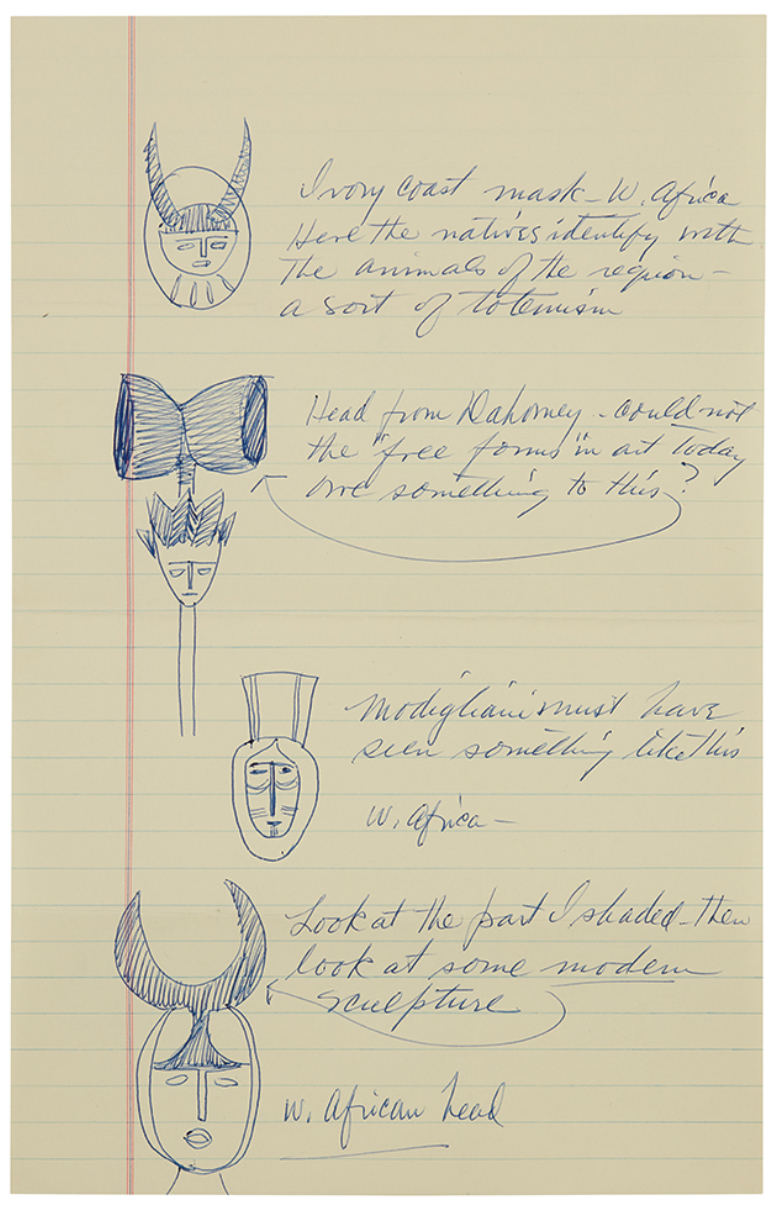 Ivory Coast mask – W. Africa
Here the natives identify with
The animals of the region –
a sort of totemism
Head from Dahomey – could not
the "free forms" in art today
owe something to this?
Modigliani must have
seen something like this
W. Africa –
Look at the part I shaded – then
look at some modern
sculpture
W. African head